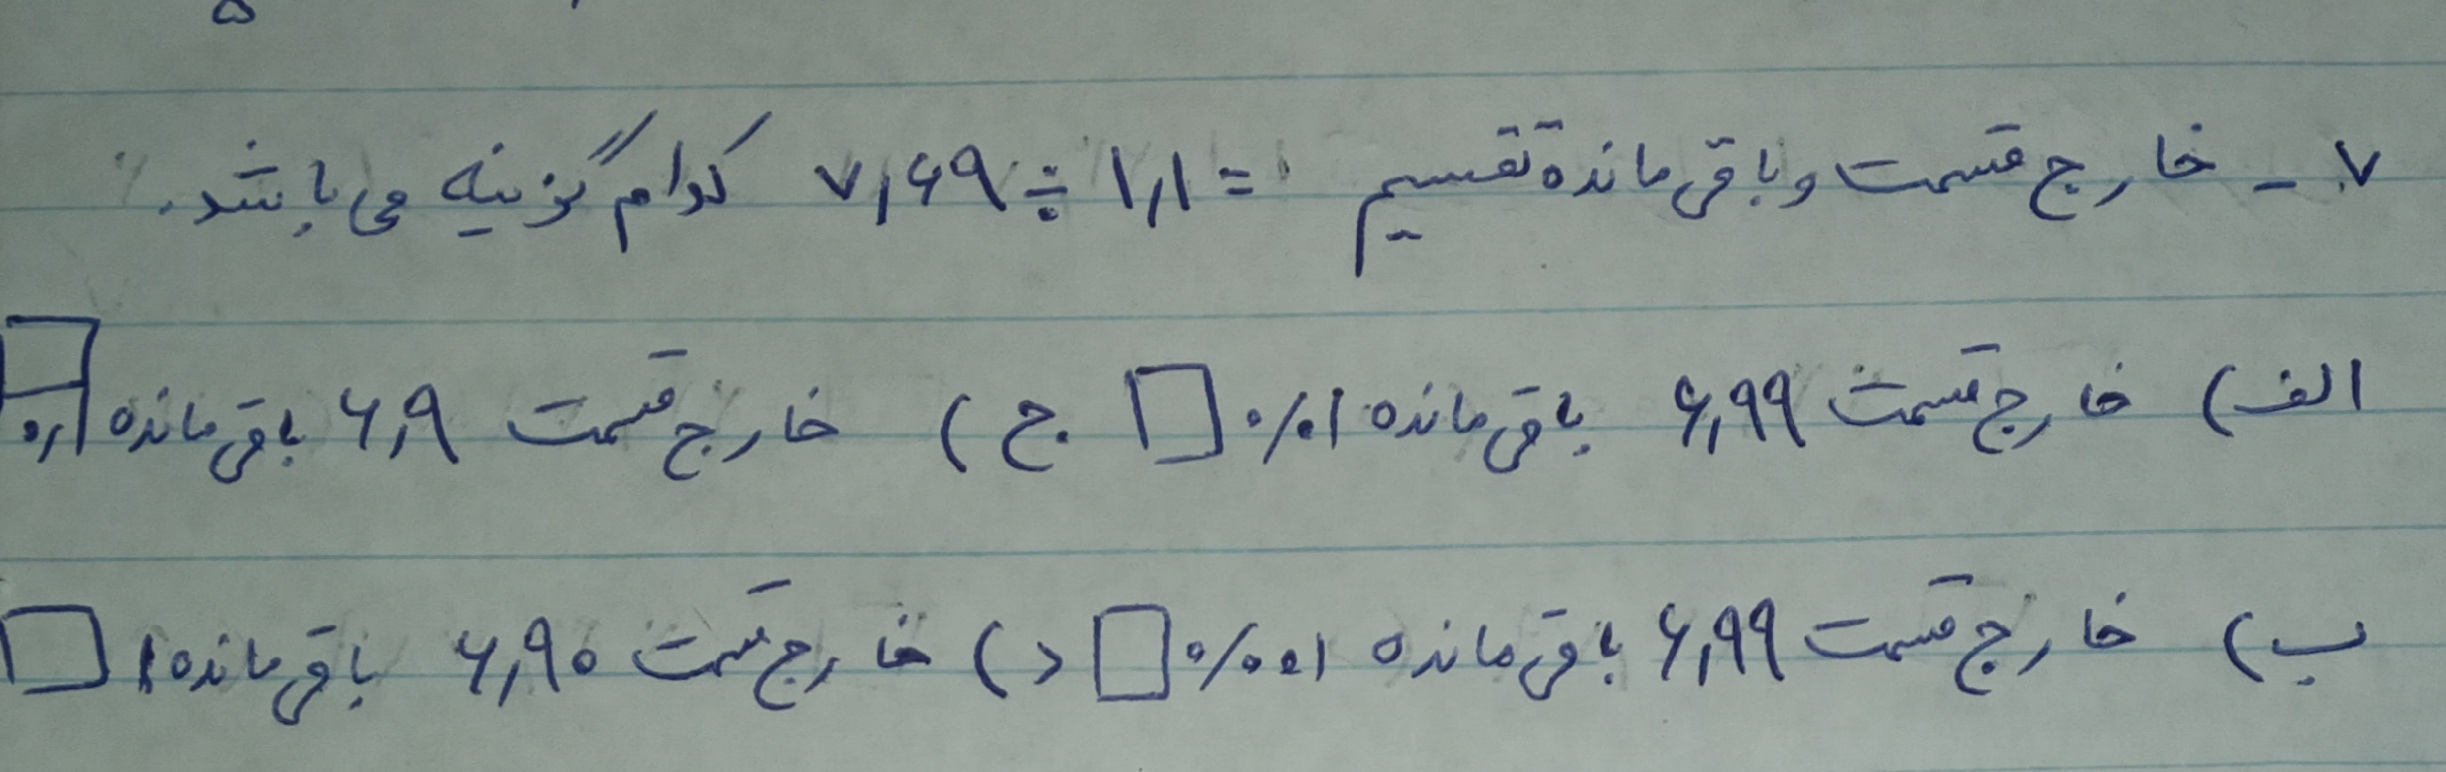 ۷ - خارج قسمت و باقی مانده تقسیم = ۷,۶۹ ÷ ۱,۱ کدام گزینه می باشد.
الف) خارج قسمت ۶,۹۹ باقی مانده ۰/۰۱ □ ج) خارج قسمت ۶,۹ باقی مانده ۰,۱ □
ب) خارج قسمت ۶,۹۹ باقی مانده ۰/۰۰۱ □ د) خارج قسمت ۶,۹۰ باقی مانده ۱ □